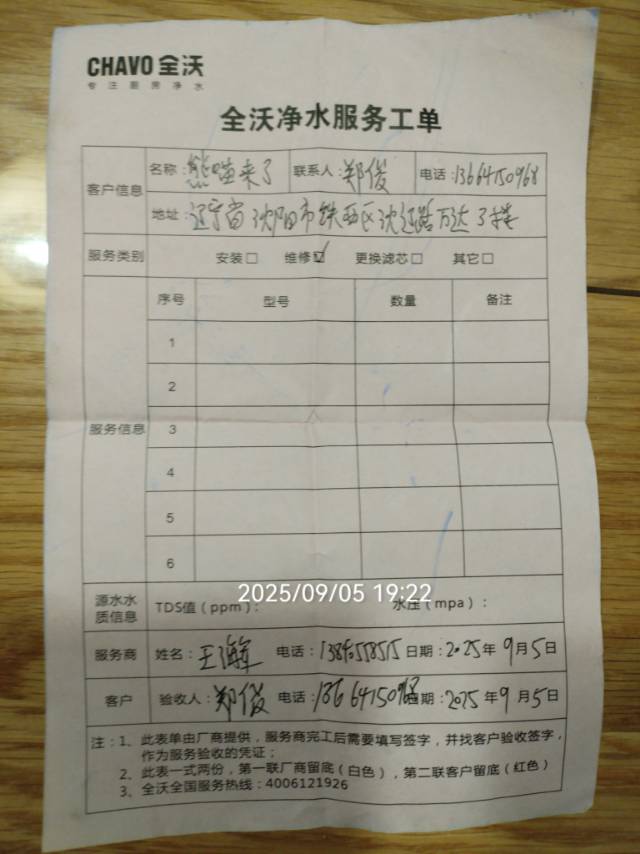 CHAVO 全沃
专注厨房净水
全沃净水服务工单
客户信息 名称：熊喵来了 联系人：郑俊 电话：13664150968
地址：辽宁省沈阳市铁西区沈辽路万达3楼
服务类别 安装□ 维修☑ 更换滤芯□ 其它□
服务信息 序号 型号 数量 备注
1
2
3
4
5
6
源水水质信息 TDS值（ppm）： 水压（mpa）：
2025/09/05 19:22
服务商 姓名：王 电话： 日期：2025年9月5日
客户 验收人：郑俊 电话：13664150968 日期：2025年9月5日
注：1、此表单由厂商提供，服务商完工后需要填写签字，并找客户验收签字，
作为服务验收的凭证；
2、此表一式两份，第一联厂商留底（白色），第二联客户留底（红色）
3、全沃全国服务热线：4006121926